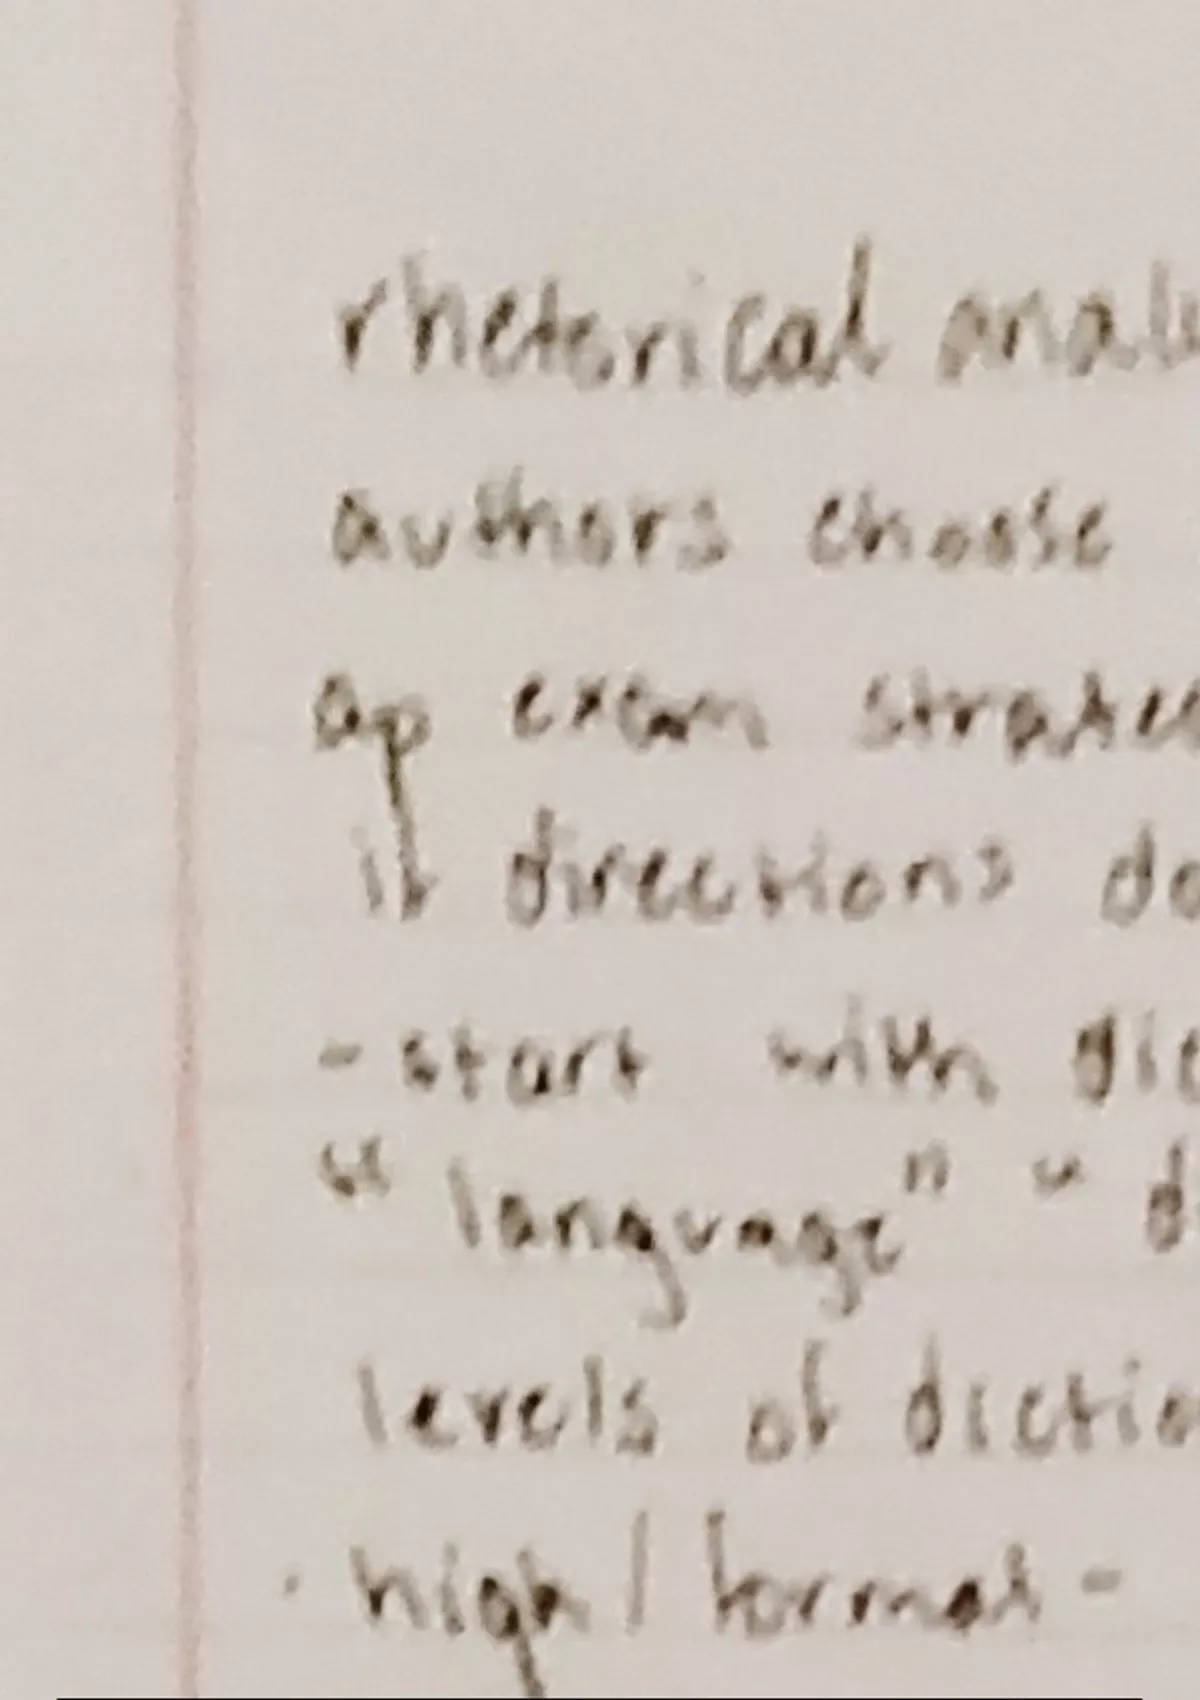 rhetorical analy
authors choose
ap exam strateg
if directions do
-start with dic
"language" " di
levels of dictio
· high / formal -